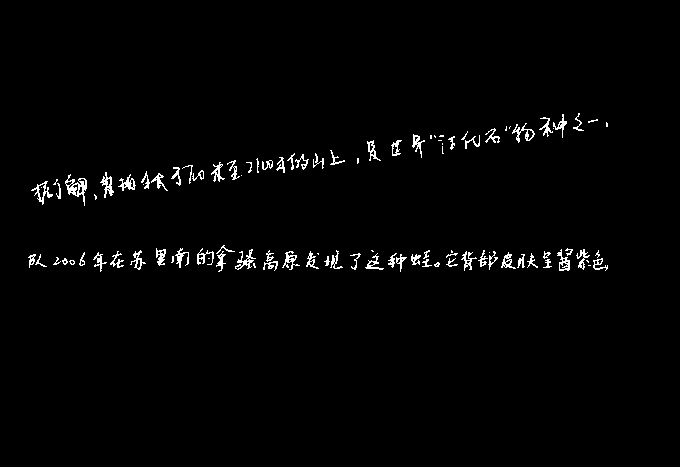 据了解,崖柏生长于700米至2100米的山上,是世界“活化石”物种之一,
队2006年在苏里南的拿骚高原发现了这种蛙。它背部皮肤呈酱紫色,